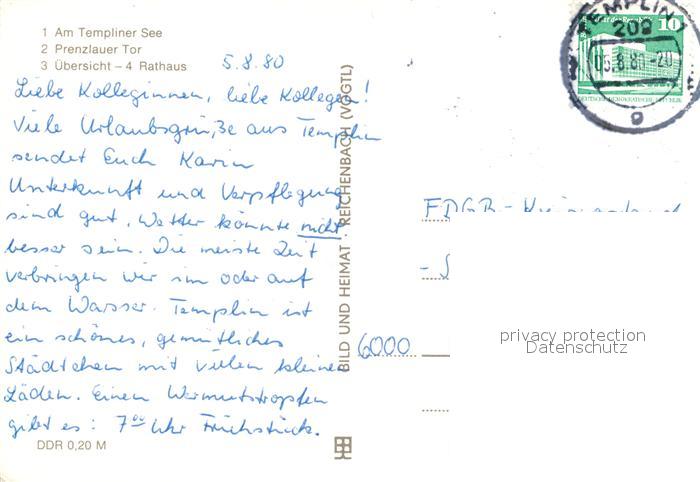 1 Am Templiner See
2 Prenzlauer Tor
3 Übersicht – 4 Rathaus
5.8.80
Liebe Kolleginnen, liebe Kollegen!
Viele Urlaubsgrüße aus Templin
sendet Euch Karin
Unterkunft und Verpflegung
sind gut, Wetter könnte nicht
besser sein. Die meiste Zeit
verbringen wir im oder auf
dem Wasser. Templin ist
ein schönes, gemütliches
Städtchen mit vielen kleinen
Läden. Einen Wermutstropfen
gibt es: 7⁰⁰ Uhr Frühstück.
DDR 0,20 M
BILD UND HEIMAT REICHENBACH (VOGTL)
TEMPLIN 1
209
05.8.80-20
9
10
DEUTSCHE DEMOKRATISCHE REPUBLIK
FDGB-
6000
privacy protection
Datenschutz